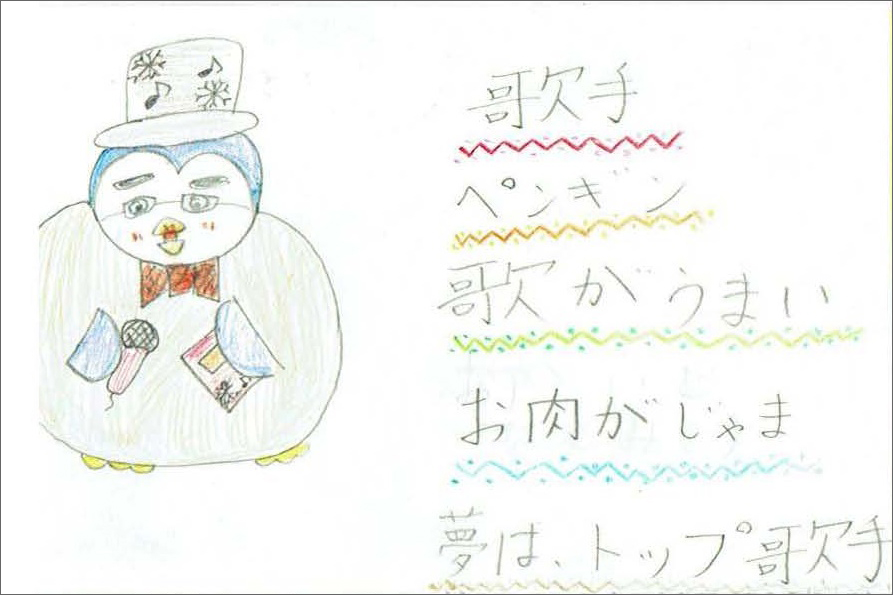 歌手
ペンギン
歌がうまい
お肉がじゃま
夢は、トップ歌手